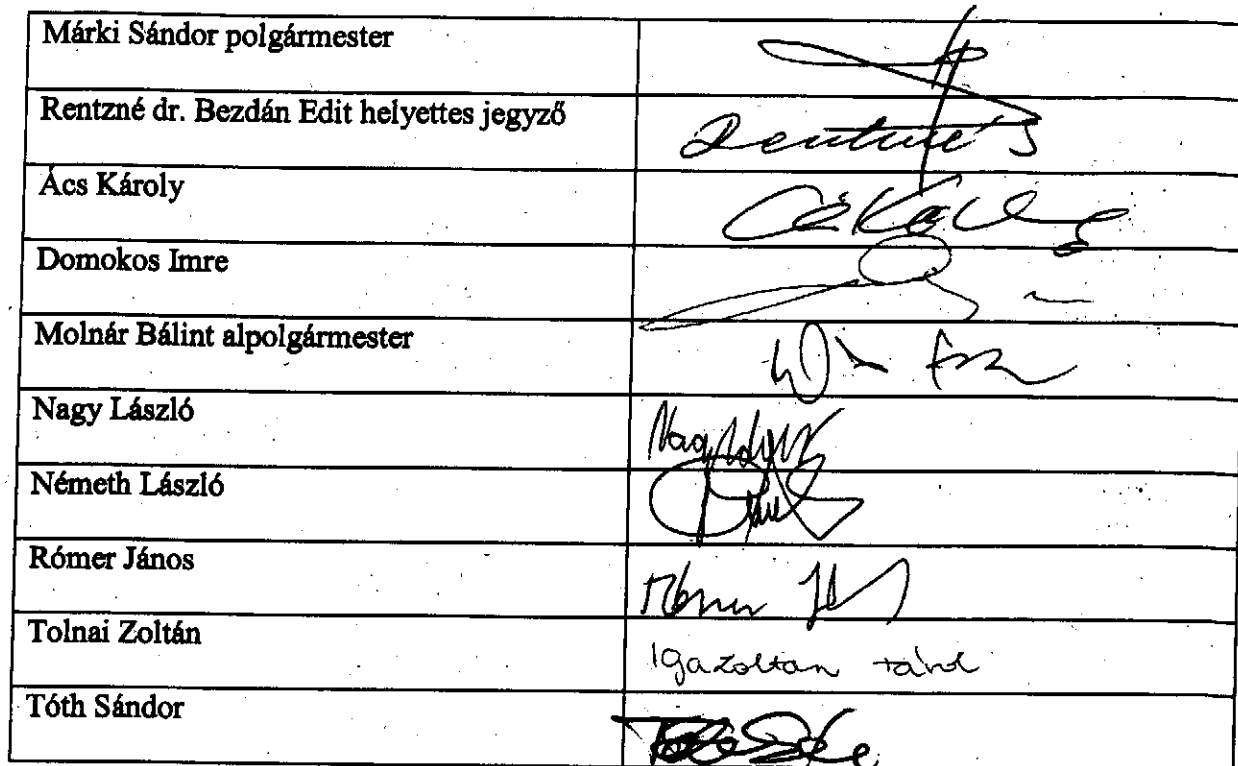 Márki Sándor polgármester
Rentzné dr. Bezdán Edit helyettes jegyző
Rentzné
Ács Károly
Domokos Imre
Molnár Bálint alpolgármester
Nagy László
Nagy
Németh László
Rómer János
Tolnai Zoltán
Igazoltan távol
Tóth Sándor